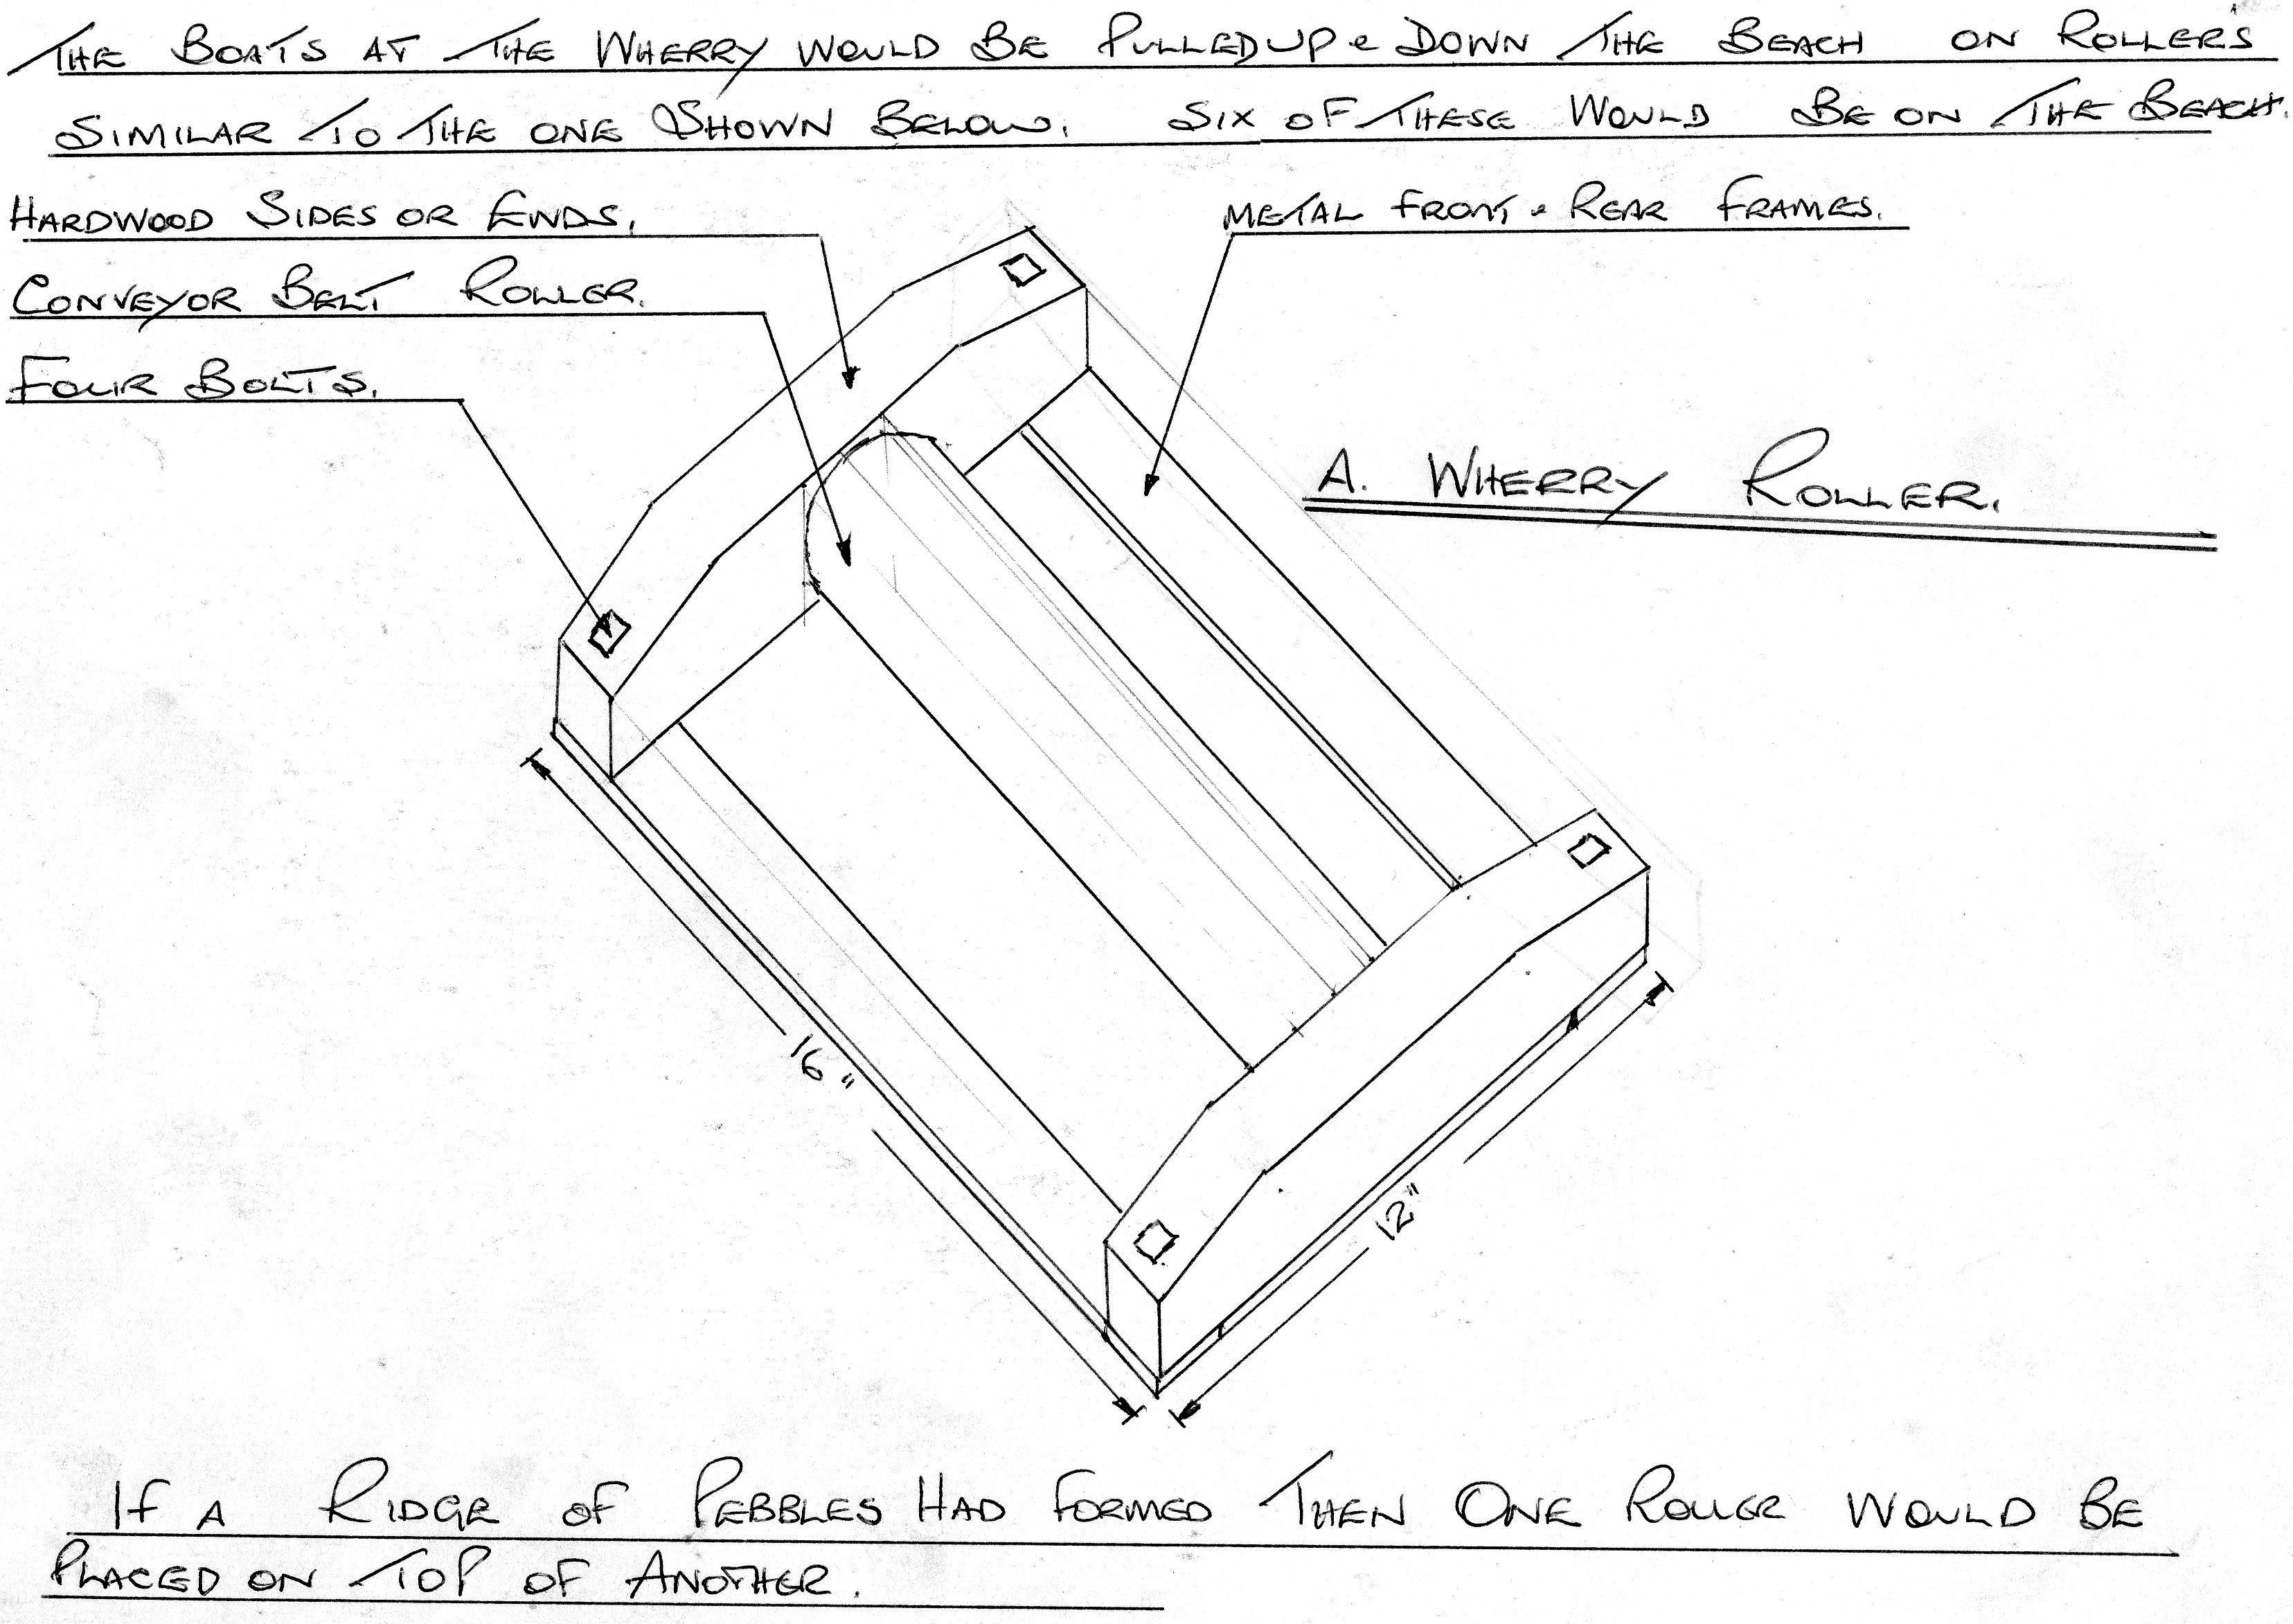 THE BOATS AT THE WHERRY WOULD BE PULLED UP & DOWN THE BEACH ON ROLLERS
SIMILAR TO THE ONE SHOWN BELOW. SIX OF THESE WOULD BE ON THE BEACH.
HARDWOOD SIDES OR ENDS.
METAL FRONT & REAR FRAMES.
CONVEYOR BELT ROLLER.
FOUR BOLTS.
A. WHERRY ROLLER.
16"
12"
IF A RIDGE OF PEBBLES HAD FORMED THEN ONE ROLLER WOULD BE
PLACED ON TOP OF ANOTHER.